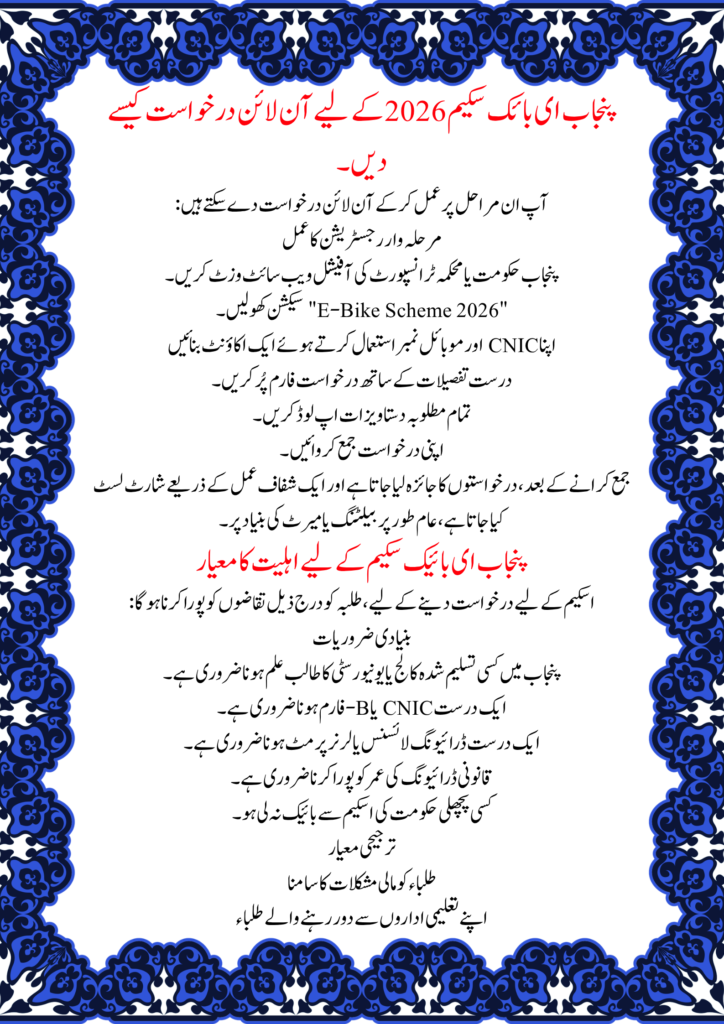 پنجاب ای بائک سکیم 2026 کے لیے آن لائن درخواست کیسے
دیں۔
آپ ان مراحل پر عمل کر کے آن لائن درخواست دے سکتے ہیں:
مرحلہ وار رجسٹریشن کا عمل
پنجاب حکومت یا محکمہ ٹرانسپورٹ کی آفیشل ویب سائٹ وزٹ کریں۔
"E-Bike Scheme 2026" سیکشن کھولیں۔
اپنا CNIC اور موبائل نمبر استعمال کرتے ہوئے ایک اکاؤنٹ بنائیں
درست تفصیلات کے ساتھ درخواست فارم پُر کریں۔
تمام مطلوبہ دستاویزات اپ لوڈ کریں۔
اپنی درخواست جمع کروائیں۔
جمع کرانے کے بعد، درخواستوں کا جائزہ لیا جاتا ہے اور ایک شفاف عمل کے ذریعے شارٹ لسٹ
کیا جاتا ہے، عام طور پر بیلٹنگ یا میرٹ کی بنیاد پر۔
پنجاب ای بائیک سکیم کے لیے اہلیت کا معیار
اسکیم کے لیے درخواست دینے کے لیے، طلبہ کو درج ذیل تقاضوں کو پورا کرنا ہو گا:
بنیادی ضروریات
پنجاب میں کسی تسلیم شدہ کالج یا یونیورسٹی کا طالب علم ہونا ضروری ہے۔
ایک درست CNIC یا B-فارم ہونا ضروری ہے۔
ایک درست ڈرائیونگ لائسنس یا لرنر پرمٹ ہونا ضروری ہے۔
قانونی ڈرائیونگ کی عمر کو پورا کرنا ضروری ہے۔
کسی پچھلی حکومت کی اسکیم سے بائیک نہ لی ہو۔
ترجیحی معیار
طلباء کو مالی مشکلات کا سامنا
اپنے تعلیمی اداروں سے دور رہنے والے طلباء